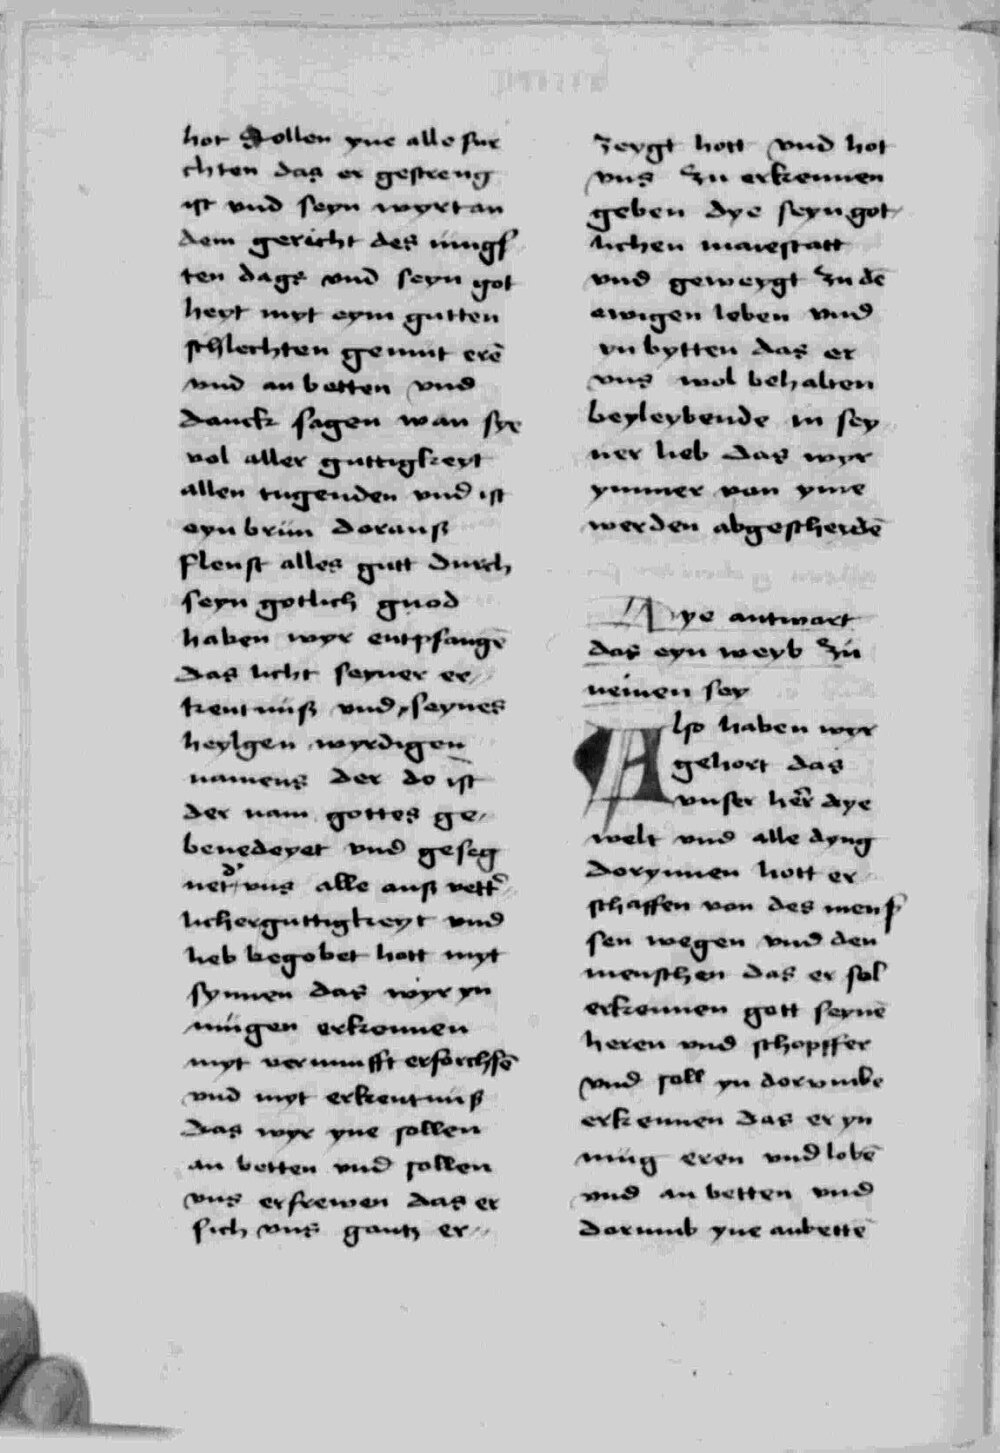 hot Sollen yne alle fur
chten das er gestreng
ist vnd seyn wyrt an
dem gericht des iungs
ten dags vnd seyn got
heyt myt eym gutten
schlechten gemut erē
vnd an betten vnd
danck sagen wan sye
vol aller guttigkeyt
allen tugenden vnd ist
eyn brün dorauß
fleust alles gutt durch
seyn gotlich gnod
haben wyr entpfangē
das licht seyner er
kentnüß vnd seynes
heylgen wyrdigen
namens der do ist
der nam gottes ge
benedeyet vnd geseg
net d' vns alle auß vett
licher guttigkeyt vnd
lieb begobet hott myt
synnen das wyr yn
mügen erkennen
myt vernunfft erforchsē
vnd myt erkentnüß
das wyr yne sollen
an betten vnd sollen
vns erfrewen das er
sich vns gantz er
zeygt hott vnd hot
vns zu erkennen
geben dye seyn got
lichen maiestatt
vnd geweygt zu dē
ewigen leben vnd
yn bytten das er
vns wol behalten
beyleybende in sey
ner lieb das wyr
ymmer von yme
werden abgescheydē
Dye antwart
das eyn weyb zu
nemen sey
Also haben wyr
gehort das
vnser her̄ dye
welt vnd alle dyng
dorynnen hott er
schaffen von des mens
sen wegen vnd den
menschen das er sol
erkennen gott seynē
heren vnd schopffer
vnd soll yn dorumbe
erkennen das er yn
müg eren vnd lobē
vnd an betten vnd
dorumb yne anbettē